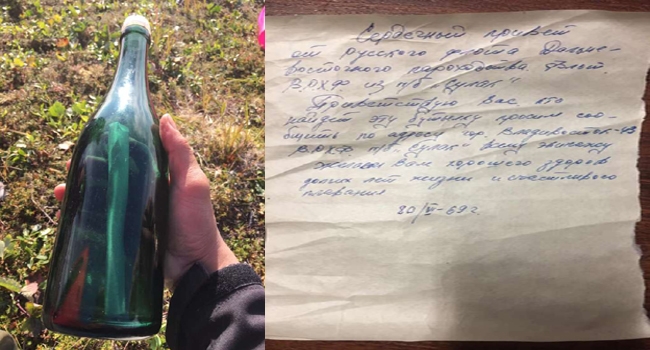 Сердечный привет
от русского флота Дальне-
восточного пароходства.
ВРХФ из п/б Сулак"
Приветствую Вас кто
найдет эту бутылку просим сооб-
щить по адресу гор. Владивосток-43
ВРХФ п/б Сулак"
желаем Вам хорошего здоровья
долгих лет жизни и счастливого
плавания
20/VI-69 г.